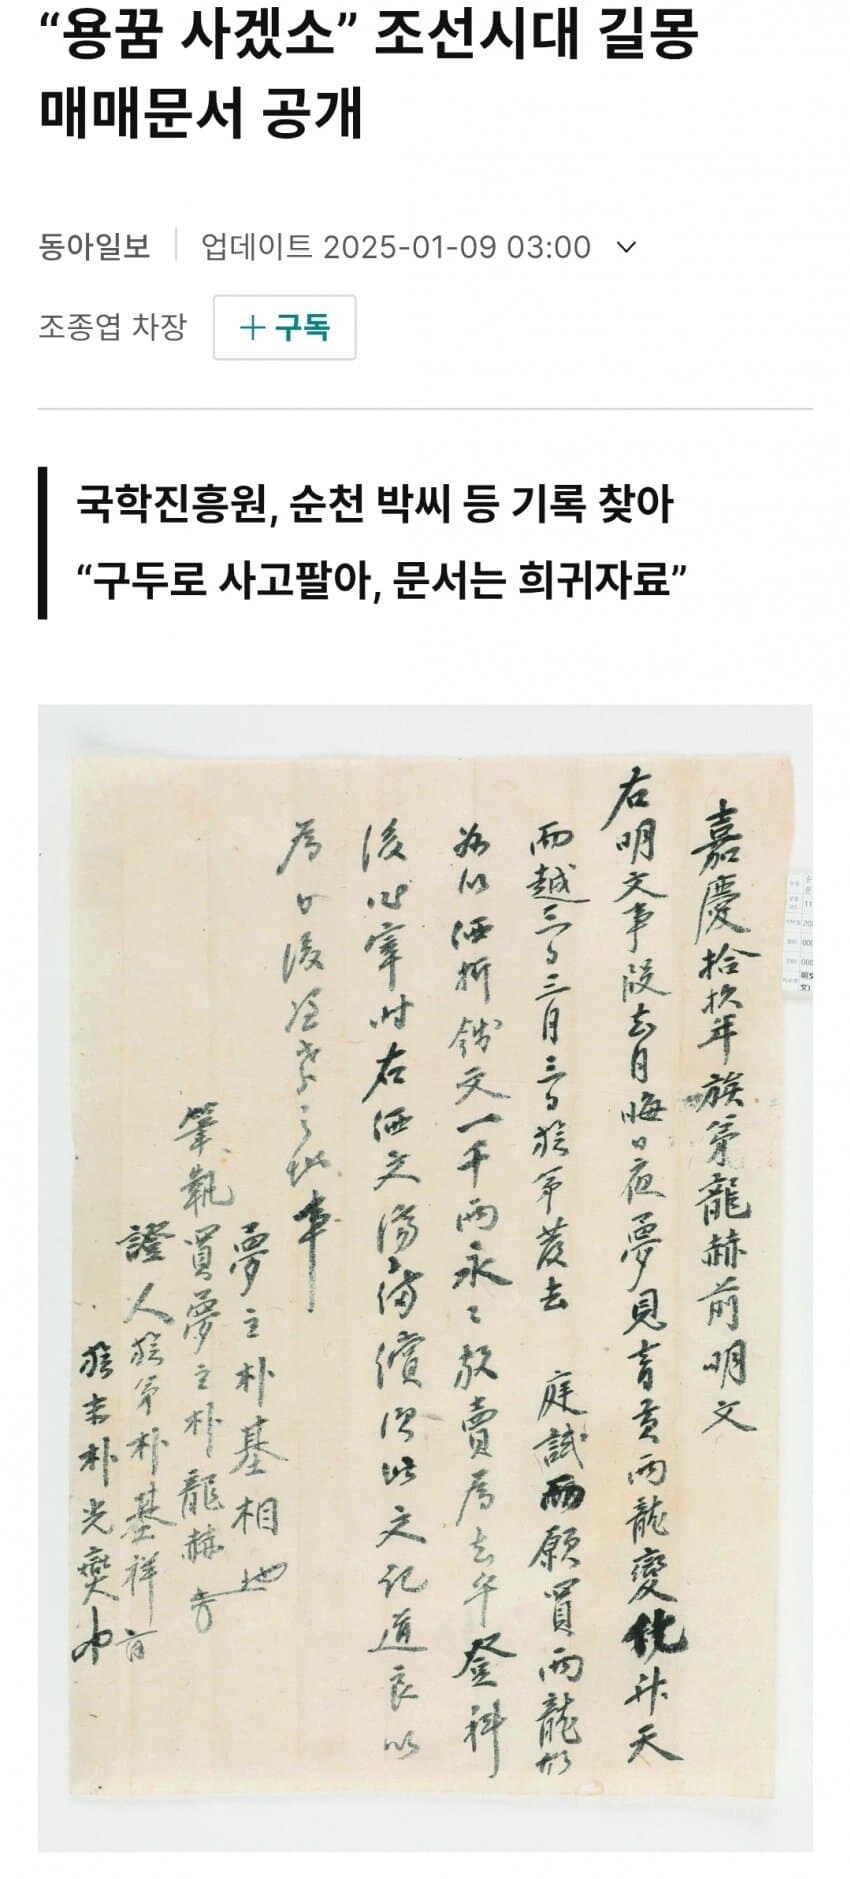 “용꿈 사겠소” 조선시대 길몽
매매문서 공개
동아일보
업데이트 2025-01-09 03:00
조종엽 차장
+ 구독
국학진흥원, 순천 박씨 등 기록 찾아
“구두로 사고팔아, 문서는 희귀자료”
嘉慶拾玖年族弟龍赫前明文
右明文事段去月晦日夜夢見靑黃兩龍變化升天
而越三日三月三日族弟發去 庭試 願買兩龍
酒 錢文一千兩永永放賣爲去乎登科
後 右 文 備償 此文記導良以
爲 事
夢主朴基相
筆執買夢主朴龍赫
證人族弟朴基祥
朴光